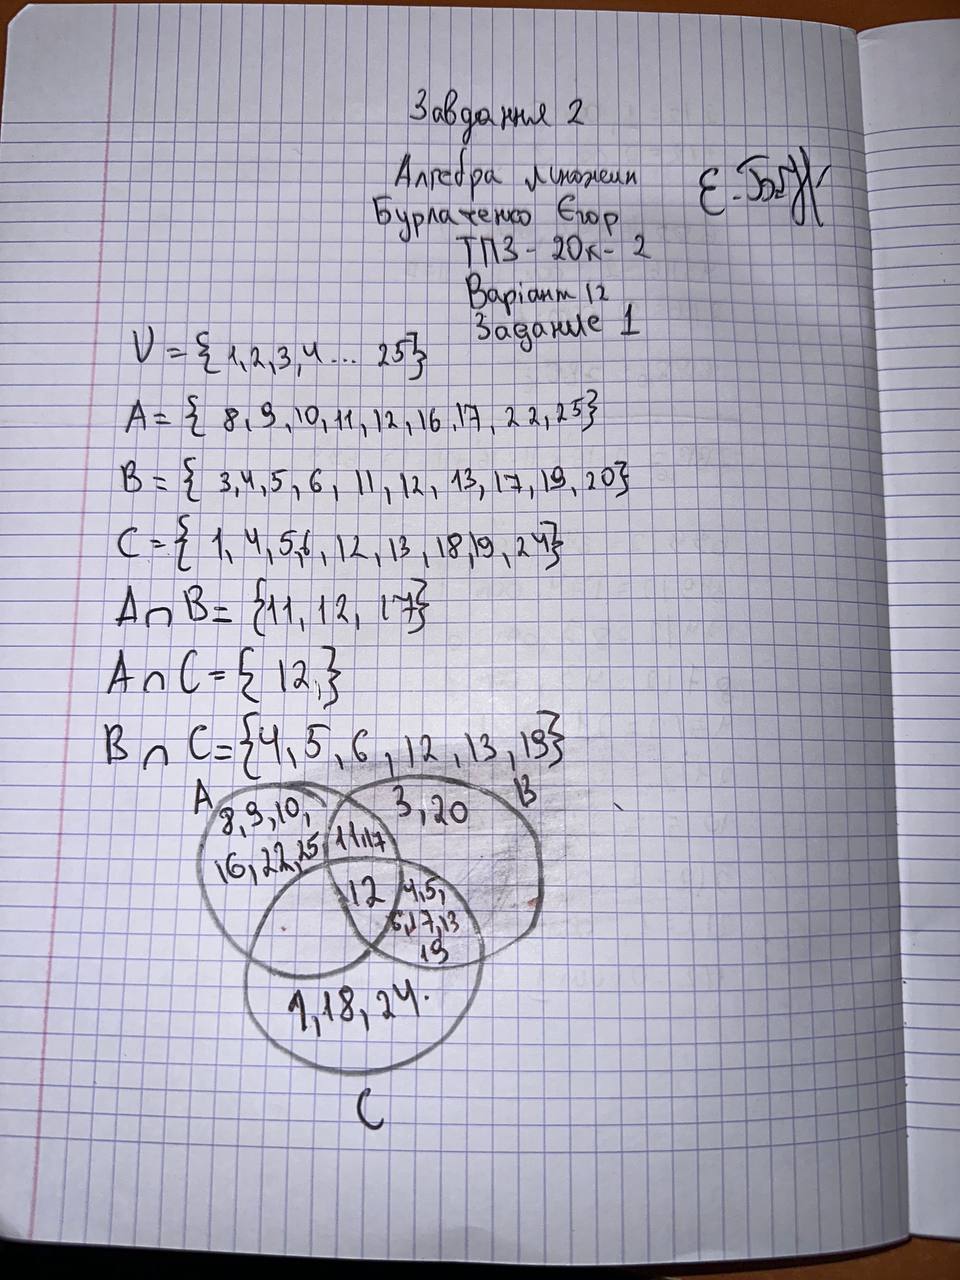 Завдання 2
Алгебра множин
Бурлаченко Єгор
ТПЗ - 20к - 2
Варіант 12
Задание 1
U = {1, 2, 3, 4 ... 25}
A = { 8, 9, 10, 11, 12, 16, 17, 22, 25}
B = { 3, 4, 5, 6, 11, 12, 13, 17, 19, 20}
C = { 1, 4, 5, 6, 12, 13, 18, 19, 24}
A ∩ B = {11, 12, 17}
A ∩ C = { 12,}
B ∩ C = {4, 5, 6, 12, 13, 19}
A
B
8, 9, 10,
3, 20
11,17
16, 22, 25
12
4,5,
6,17,13
19
1, 18, 24.
C